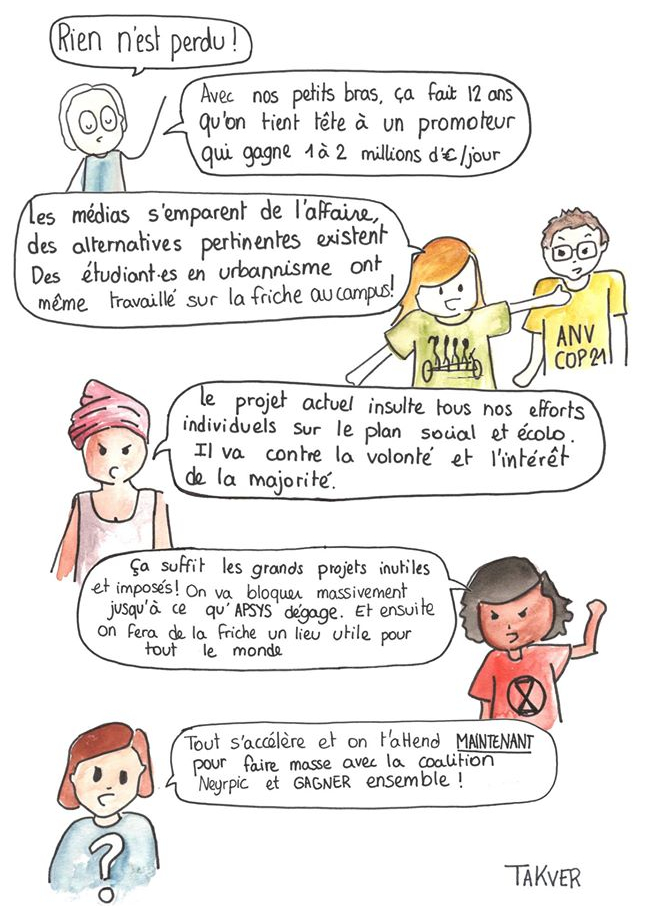 Rien n'est perdu !
Avec nos petits bras, ça fait 12 ans
qu'on tient tête à un promoteur
qui gagne 1 à 2 millions d'€/jour
Les médias s'emparent de l'affaire,
des alternatives pertinentes existent
Des étudiant·es en urbannisme ont
même travaillé sur la friche au campus!
ANV
COP 21
Le projet actuel insulte tous nos efforts
individuels sur le plan social et écolo.
Il va contre la volonté et l'intérêt
de la majorité.
Ça suffit les grands projets inutiles
et imposés! On va bloquer massivement
jusqu'à ce qu'APSYS dégage. Et ensuite
on fera de la friche un lieu utile pour
tout le monde
Tout s'accélère et on t'attend MAINTENANT
pour faire masse avec la coalition
Neyrpic et GAGNER ensemble !
?
TAKVER